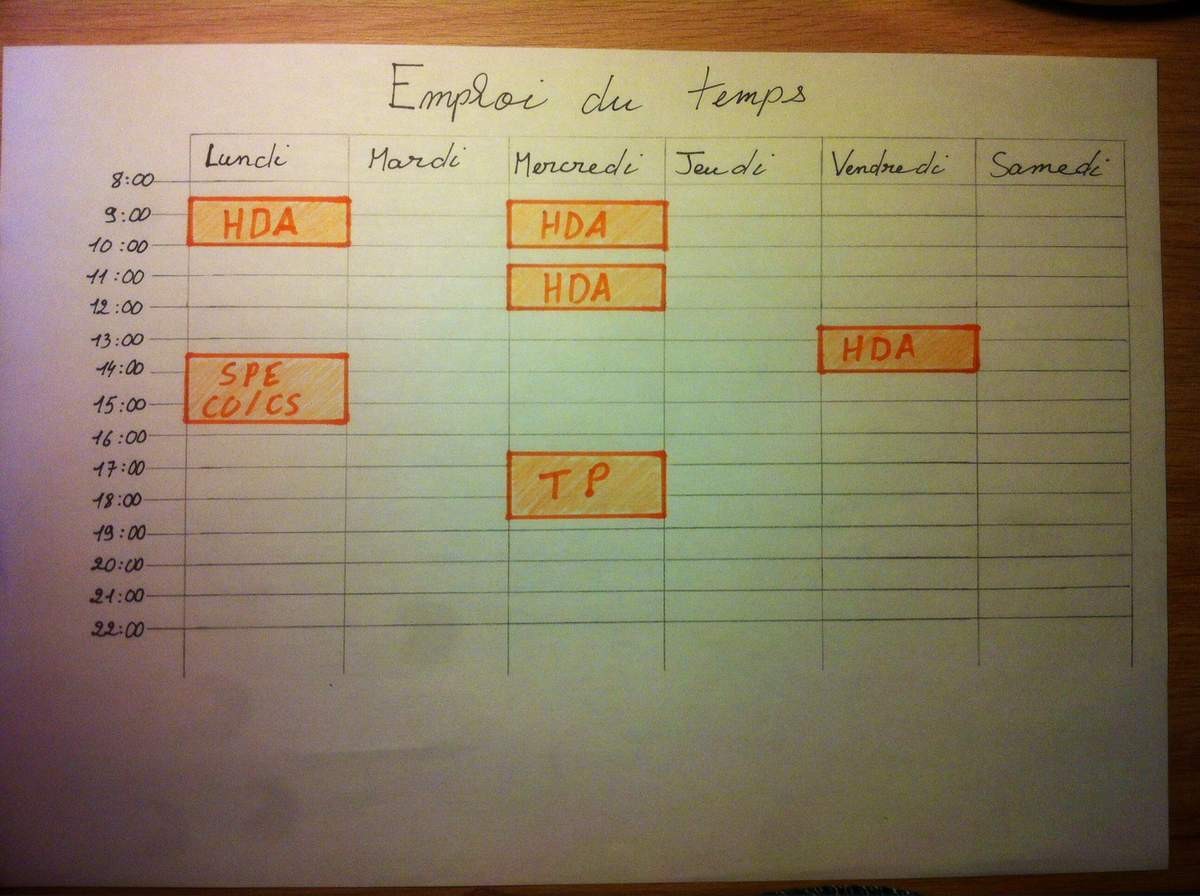 Emploi du temps
Lundi Mardi Mercredi Jeudi Vendredi Samedi
8:00
9:00 HDA HDA
10:00
11:00 HDA
12:00
13:00 HDA
14:00 SPE
15:00 CO/CS
16:00
17:00 TP
18:00
19:00
20:00
21:00
22:00